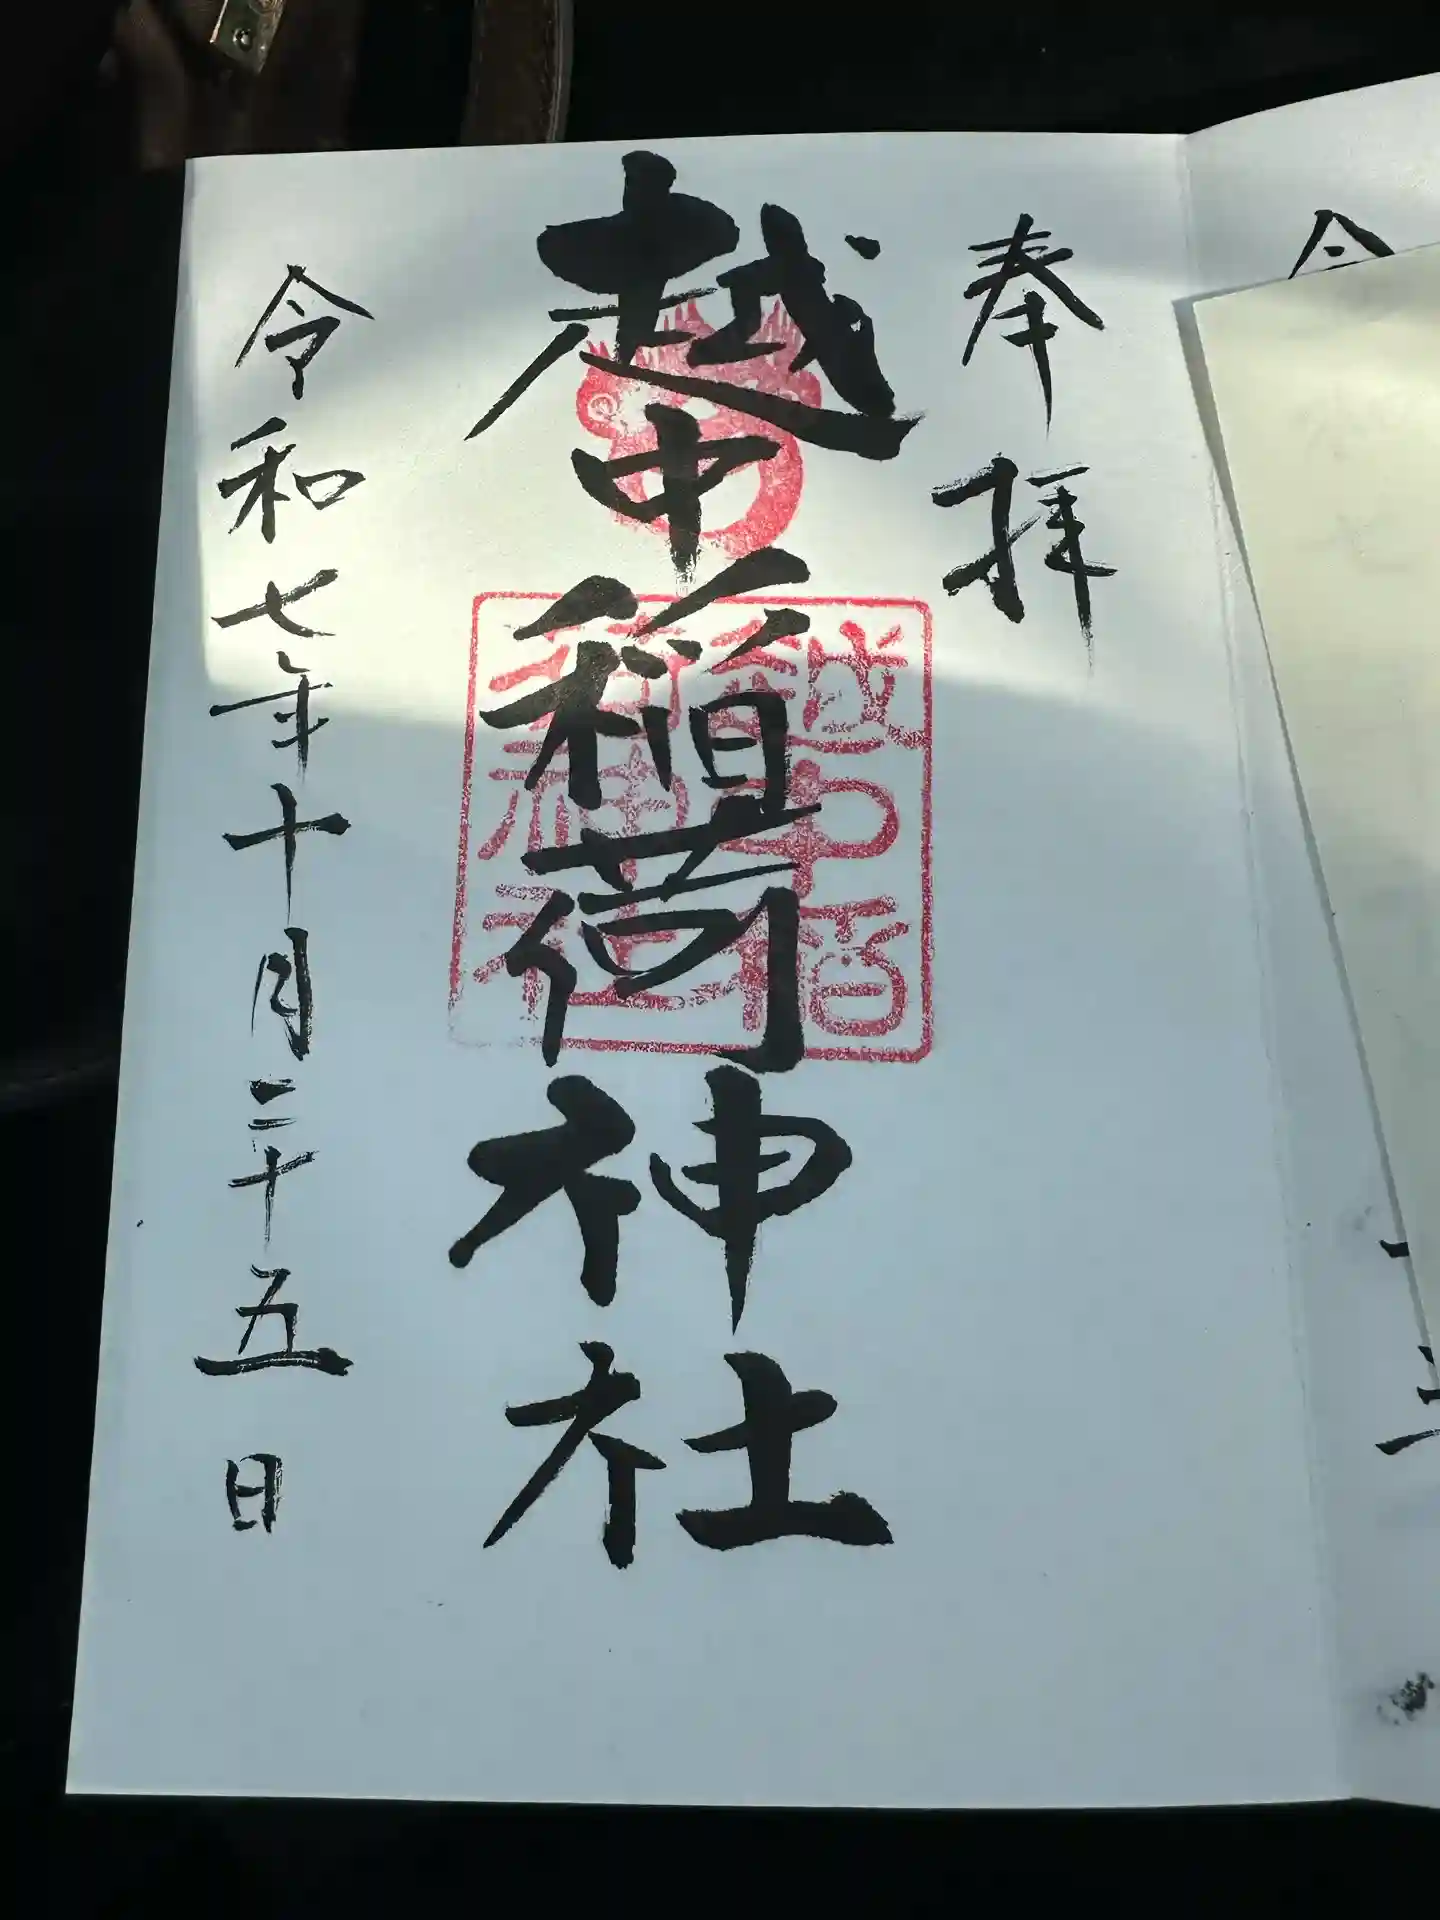 奉拝
越中稲荷神社
越中稲荷神社
令和七年十月二十五日
令